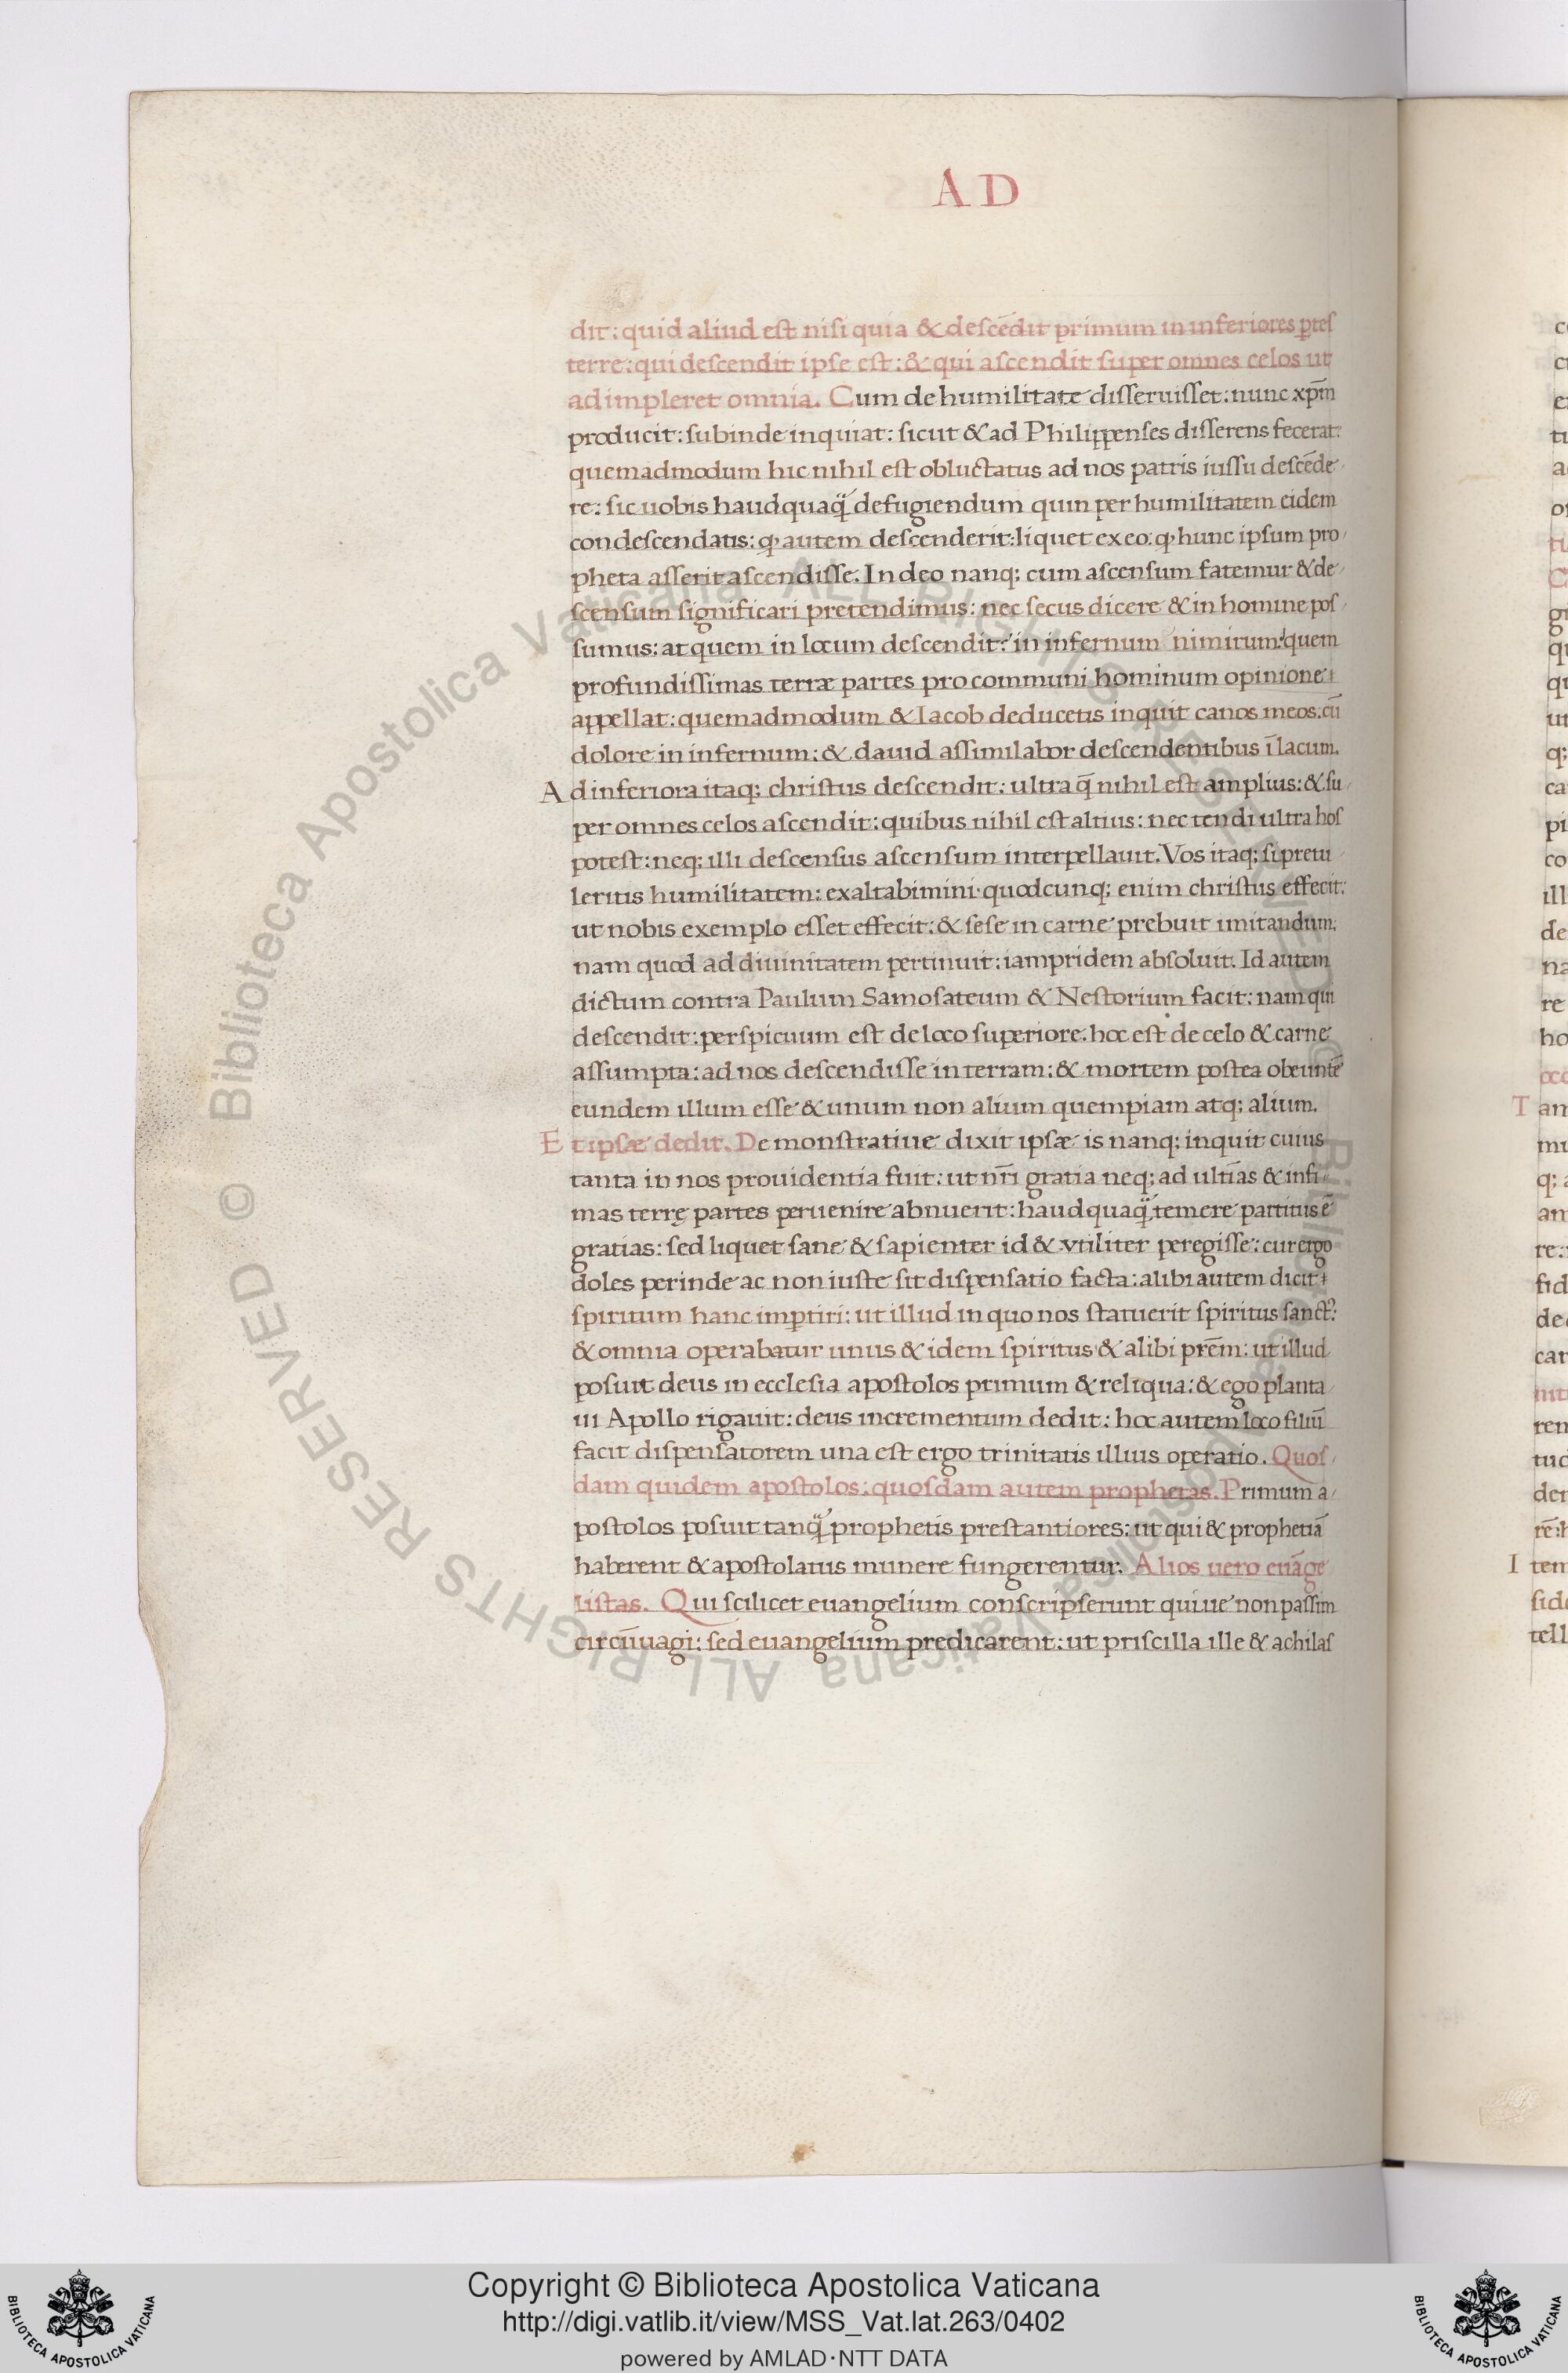 AD
dit: quid aliud est nisi quia & descēdit primum in inferiores ꝑtes
terre: qui descendit ipse est: & qui ascendit super omnes celos ut
adimpleret omnia. Cum de humilitate disseruisset: nunc xp̄m
producit: subinde inquiat: sicut & ad Philippenses disserens fecerat:
quemadmodum hic nihil est obluctatus ad nos patris iussu descēde
re: sic uobis haudquaq̈ defugiendum quin per humilitatem eidem
condescendatis: ꝙ autem descenderit: liquet ex eo: ꝙ hunc ipsum pro
pheta asserit ascendisse. In deo nanq; cum ascensum fatemur & de
scensum significari pretendimus: nec secus dicere & in homine pos
sumus: at quem in locum descendit? in infernum nimirum: quem
profundissimas terræ partes pro communi hominum opinione
appellat: quemadmodum & Iacob deducetis inquit canos meos: cū
dolore in infernum: & dauid assimilabor descendentibus ī lacum.
Ad inferiora itaq; christus descendit: ultra q̄ nihil est amplius: & su
per omnes celos ascendit: quibus nihil est altius: nec tendi ultra hos
potest: neq; illi descensus ascensum interpellauit. Vos itaq; si pretu
leritis humilitatem: exaltabimini quodcunq; enim christus effecit:
ut nobis exemplo esset effecit: & sese in carne prebuit imitandum.
nam quod ad diuinitatem pertinuit: iampridem absoluit. Id autem
dictum contra Paulum Samosateum & Nestorium facit: nam qui
descendit: perspicuum est de loco superiore. hoc est de celo & carne
assumpta: ad nos descendisse in terram: & mortem postea obeuntē
eundem illum esse & unum non alium quempiam atq; alium.
Et ipsæ dedit. Demonstratiue dixit ipsæ is nanq; inquit cuius
tanta in nos prouidentia fuit: ut nr̄i gratia neq; ad ultīas & infi
mas terrę partes peruenire abnuerit: haudquaq̈ temere partitus ē
gratias: sed liquet sane & sapienter id & vtiliter peregisse: cur ergo
doles perinde ac non iuste sit dispensatio facta: alibi autem dicit
spiritum hanc imꝑtiri: ut illud in quo nos statuerit spiritus sanctꝰ:
& omnia operabatur unus & idem spiritus & alibi prēm: ut illud
posuit deus in ecclesia apostolos primum & reliqua: & ego planta
ui Apollo rigauit: deus incrementum dedit: hoc autem loco filiū
facit dispensatorem una est ergo trinitatis illius operatio. Quos
dam quidem apostolos: quosdam autem prophetas. Primum a
postolos posuit tanq̈ prophetis prestantiores: ut qui & prophetiā
haberent & apostolatus munere fungerentur. Alios uero euāge
listas. Qui scilicet euangelium conscripserunt quiue non passim
circūuagi: sed euangelium predicarent: ut priscilla ille & achilas
Copyright © Biblioteca Apostolica Vaticana
http://digi.vatlib.it/view/MSS_Vat.lat.263/0402
powered by AMLAD·NTT DATA